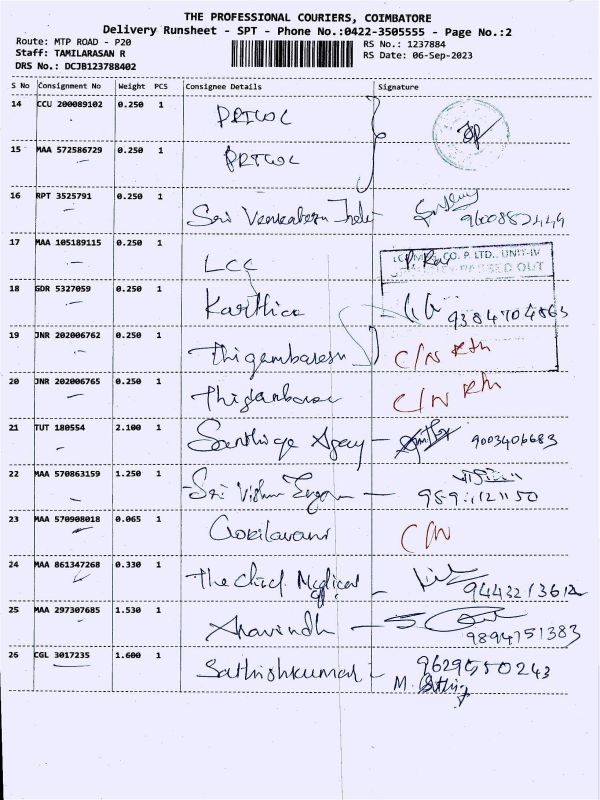 THE PROFESSIONAL COURIERS, COIMBATORE
Delivery Runsheet - SPT - Phone No.:0422-3505555 - Page No.:2
Route: MTP ROAD - P20
RS No.: 1237884
Staff: TAMILARASAN R
RS Date: 06-Sep-2023
DRS No.: DCJB123788402
S No Consignment No Weight PCS Consignee Details Signature
14 CCU 200089102 0.250 1 PRICOL
15 MAA 572586729 0.250 1 PRICOL
16 RPT 3525791 0.250 1 Sri Venkatesh 9600882449
17 MAA 105189115 0.250 1 LCC
CO. P. LTD., UNIT-IV
PASSED OUT
18 GDR 5327059 0.250 1 Karthica 9384704863
19 JNR 202006762 0.250 1 Thigambaresh C/N Rtn
20 JNR 202006765 0.250 1 C/N Rtn
21 TUT 180554 2.100 1 9003406683
22 MAA 570863159 1.250 1 Sri Vishnu
23 MAA 570908018 0.065 1 Gokilavani C/N
24 MAA 861347268 0.330 1 The Chief Medical 9443213612
25 MAA 297307685 1.530 1 Aravindh 9894751383
26 CGL 3017235 1.600 1 Sathishkumar 9629550243